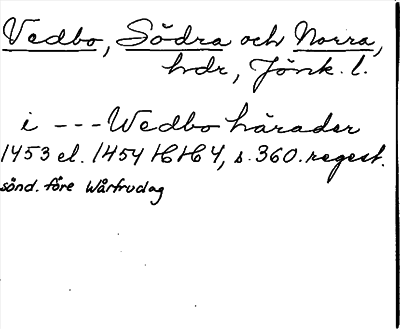 Vedbo, Södra och Norra,
hdr, Jönk. l.
i --- Wedbo härader
1453 el. 1454 HH 4, s. 360. regest.
sönd. före Wårfrudag